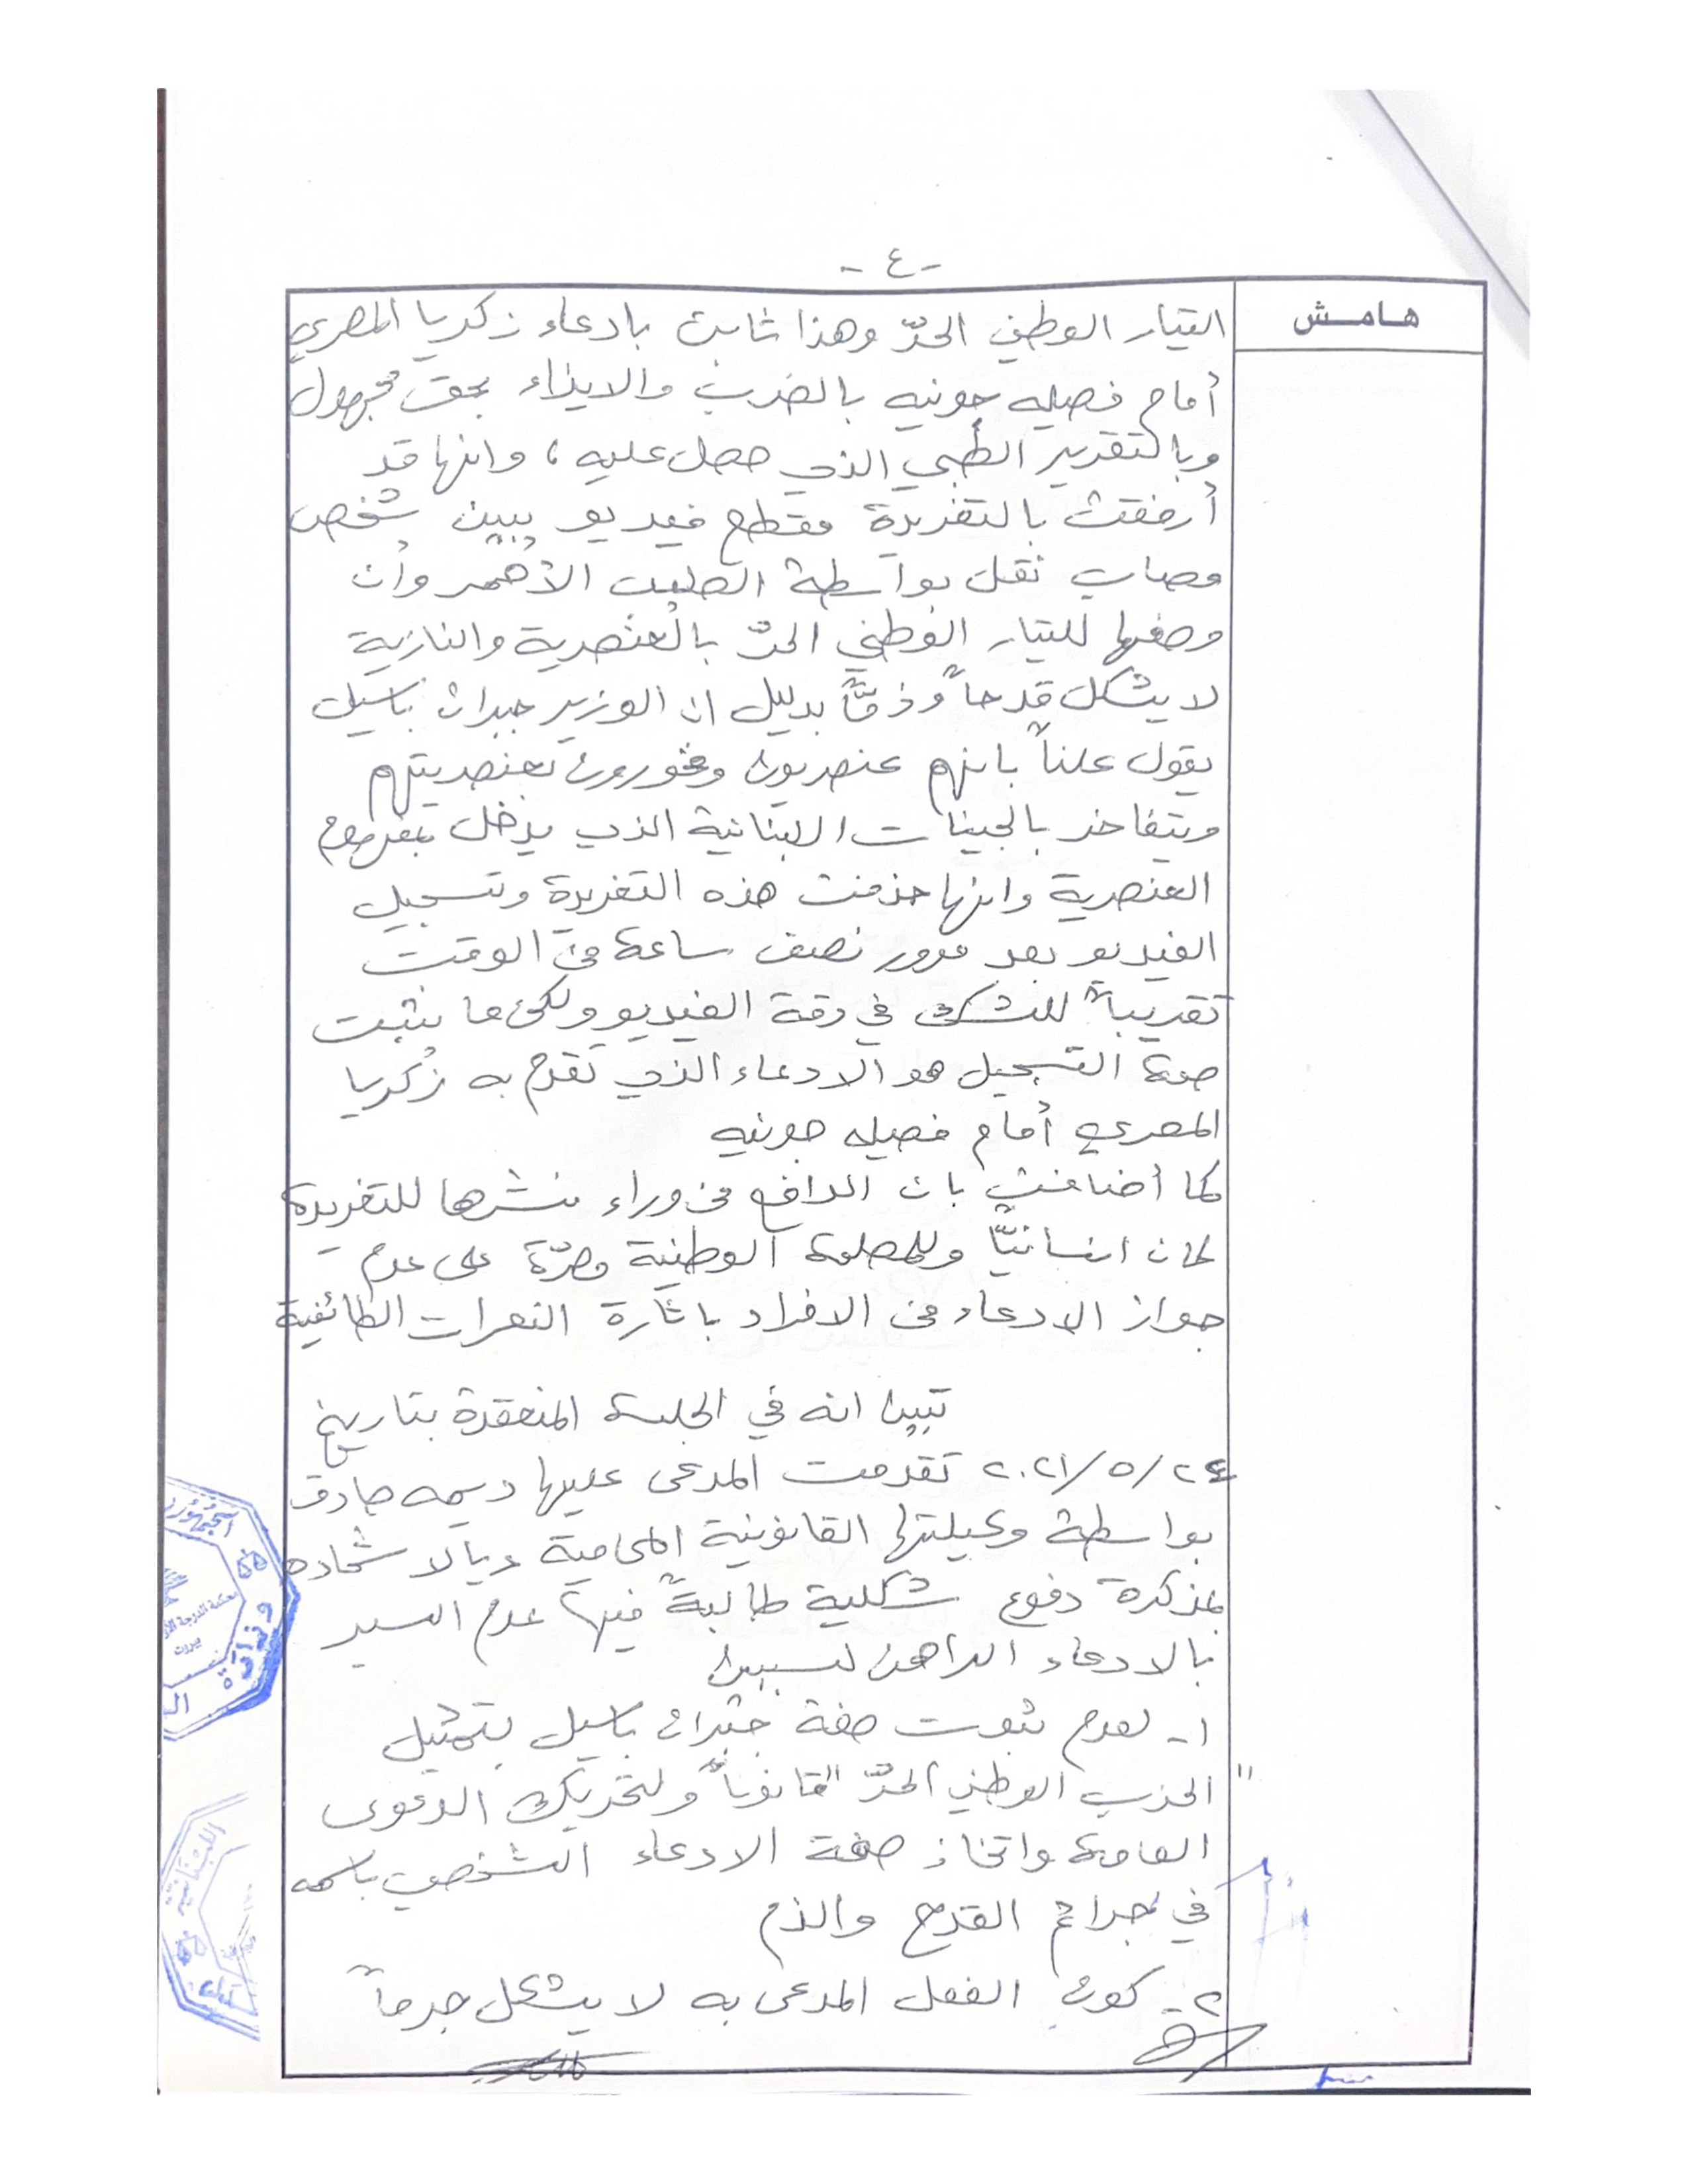 -٤-
هامش
التيار الوطني الحرّ وهذا ثابت بادعاء زكريا المصري
أمام فصيله جونيه بالضرب والايذاء بحق مجهول
وبالتقرير الطبي الذي حصل عليه، وانها قد
أرفقت بالتغريدة مقطع فيديو يبين شخص
مصاب نقل بواسطة الصليب الأحمر وأن
وصفها للتيار الوطني الحرّ بالعنصرية والنازية
لا يشكل قدحاً وذمّاً بدليل ان الوزير جبران باسيل
يقول علناً بانهم عنصريون وفخورون بعنصريتهم
ويتفاخر بالجينات اللبنانية الذي يدخل بمفهوم
العنصرية وانها حذفت هذه التغريدة وتسجيل
الفيديو بعد مرور نصف ساعة من الوقت
تقريباً للشك في دقة الفيديو ولكن ما يثبت
صحة التسجيل هو الادعاء الذي تقدم به زكريا
المصري أمام فصيله جونيه
كما أضافت بان الدافع من وراء نشرها للتغريدة
كان انسانيّاً وللمصلحة الوطنية مصرّة على عدم
جواز الادعاء من الافراد باثارة النعرات الطائفية
تبين انه في الجلسة المنعقدة بتاريخ
٢٤/٥/٢٠٢١ تقدمت المدعى عليها ديمه صادق
بواسطة وكيلتها القانونية المحامية ديالا شحاده
بمذكرة دفوع شكلية طالبةً فيها عدم السير
بالادعاء الراهن لسببين
١- لعدم ثبوت صفة جبران باسيل بتمثيل
"الحزب الوطني الحرّ" قانوناً ولتحريك الدعوى
العامة واتخاذ صفة الادعاء الشخصي باسمه
في جرائم القدح والذم
٢- كون الفعل المدعى به لا يشكل جرماً
الجمهورية
وزارة
محكمة الدرجة
بيروت
اللبنانية